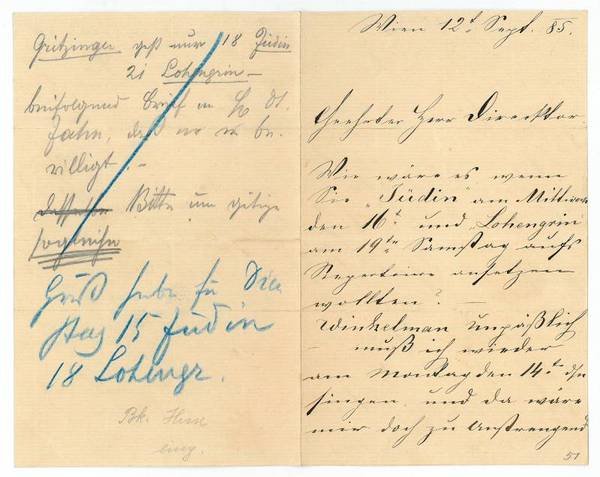 Gritzinger geht nur 18 Jüdin
21 Lohengrin –
beifolgend Brief an
Jahn, daß er es be-
willigt. –
Bitte um gütige
Dien
stag 15 Jüdin
18 Lohengr.
Wien 12t Sept. 85.
Geehrter Herr Direcktor
Wie wäre es wenn
Sie „Jüdin“ am Mittwoch
den 16t und „Lohengrin
am 19ten Samstag aufs
Repertoire ansetzen
wollten? –
Winkelman unpäßlich
– muß ich wieder
am Montag den 14t
singen, und da wäre
mir doch zu anstrengend
51